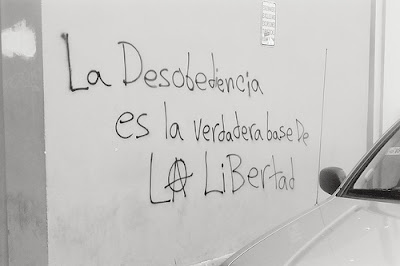 La Desobediencia
es la verdadera base De
LA LiBertad